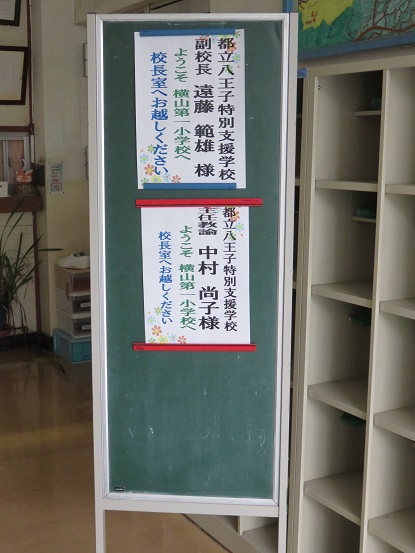 都立八王子特別支援学校
副校長 遠藤 範雄 様
ようこそ 横山第一小学校へ
校長室へお越しください
都立八王子特別支援学校
主任教諭 中村 尚子様
ようこそ 横山第一小学校へ
校長室へお越しください